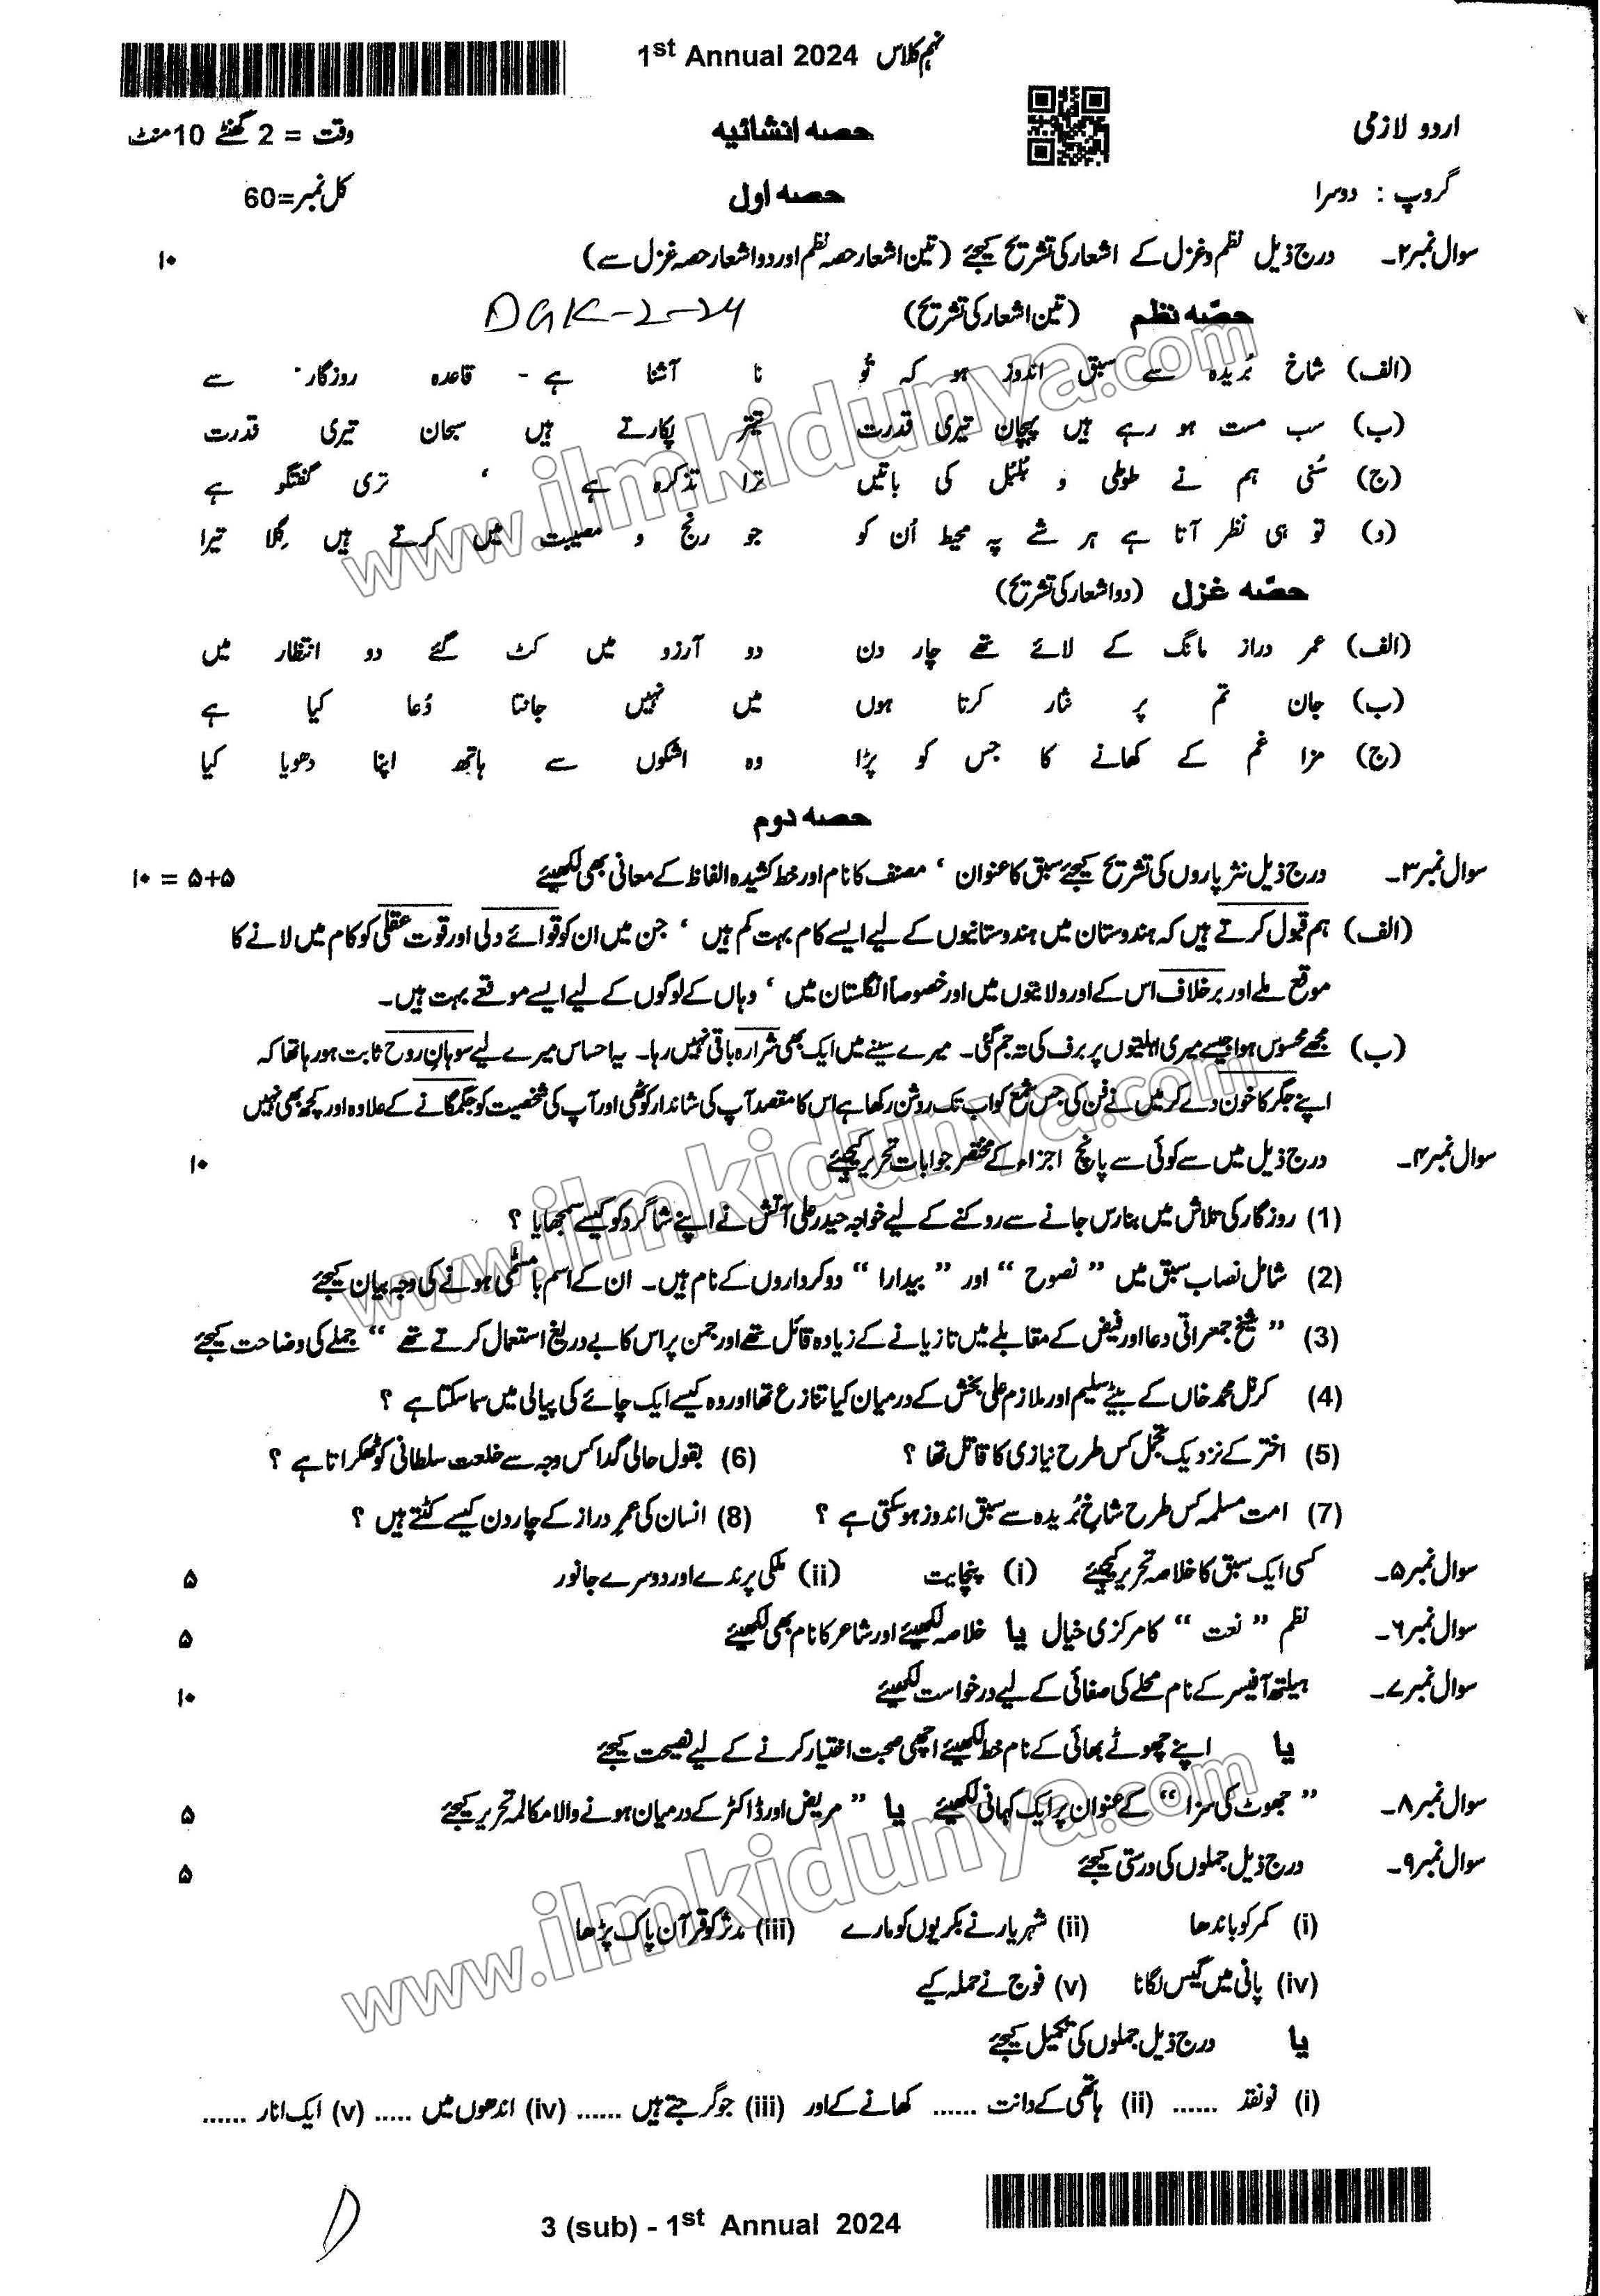 1st Annual 2024 نہم کلاس
اردو لازمی حصہ انشائیہ وقت = 2 گھنٹے 10 منٹ
گروپ : دوسرا حصہ اول کل نمبر=60
سوال نمبر۲۔ درج ذیل نظم و غزل کے اشعار کی تشریح کیجئے (تین اشعار حصہ نظم اور دو اشعار حصہ غزل سے) ۱۰
حصّہ نظم (تین اشعار کی تشریح) DGK-2-24
(الف) شاخ بُریدہ سے سبق اندوز ہو کہ تُو نا آشنا ہے - قاعدہ روزگار سے
(ب) سب مست ہو رہے ہیں پہچان تیری قدرت تیتر پکارتے ہیں سبحان تیری قدرت
(ج) سُنی ہم نے طوطی و بُلبُل کی باتیں ترا تذکرہ ہے ، تری گفتگو ہے
(د) تو ہی نظر آتا ہے ہر شے پہ محیط اُن کو جو رنج و مصیبت میں کرتے ہیں گِلا تیرا
حصّہ غزل (دو اشعار کی تشریح)
(الف) عمر دراز مانگ کے لائے تھے چار دن دو آرزو میں کٹ گئے دو انتظار میں
(ب) جان تم پر نثار کرتا ہوں میں نہیں جانتا دُعا کیا ہے
(ج) مزا غم کے کھانے کا جس کو پڑا وہ اشکوں سے ہاتھ اپنا دھویا کیا
حصہ دوم
سوال نمبر۳۔ درج ذیل نثر پاروں کی تشریح کیجئے سبق کا عنوان ، مصنف کا نام اور خط کشیدہ الفاظ کے معانی بھی لکھیئے ۵+۵ = ۱۰
(الف) ہم قبول کرتے ہیں کہ ہندوستان میں ہندوستانیوں کے لیے ایسے کام بہت کم ہیں ، جن میں ان کو قوائے دلی اور قوت عقلی کو کام میں لانے کا
موقع ملے اور برخلاف اس کے اور ولایتوں میں اور خصوصاً انگلستان میں ، وہاں کے لوگوں کے لیے ایسے موقعے بہت ہیں۔
(ب) مجھے محسوس ہوا جیسے میری اہلیتوں پر برف کی تہ جم گئی۔ میرے سینے میں ایک بھی شرارہ باقی نہیں رہا۔ یہ احساس میرے لیے سوہانِ روح ثابت ہو رہا تھا کہ
اپنے جگر کا خون دے کر میں نے فن کی جس شمع کو اب تک روشن رکھا ہے اس کا مقصد آپ کی شاندار کوٹھی اور آپ کی شخصیت کو جگمگانے کے علاوہ اور کچھ بھی نہیں
سوال نمبر۴۔ درج ذیل میں سے کوئی سے پانچ اجزاء کے مختصر جوابات تحریر کیجئے ۱۰
(1) روزگار کی تلاش میں بنارس جانے سے روکنے کے لیے خواجہ حیدر علی آتش نے اپنے شاگرد کو کیسے سمجھایا ؟
(2) شامل نصاب سبق میں " نصوح " اور " بیدارا " دو کرداروں کے نام ہیں۔ ان کے اسم بامسمّٰی ہونے کی وجہ بیان کیجئے
(3) " شیخ جمعراتی دعا اور فیض کے مقابلے میں تازیانے کے زیادہ قائل تھے اور جمن پر اس کا بے دریغ استعمال کرتے تھے " جملے کی وضاحت کیجئے
(4) کرنل محمد خاں کے بیٹے سلیم اور ملازم علی بخش کے درمیان کیا تنازع تھا اور وہ کیسے ایک چائے کی پیالی میں سما سکتا ہے ؟
(5) اختر کے نزدیک تجمل کس طرح نیازی کا قاتل تھا ؟ (6) بقول حالی گدا کس وجہ سے خلعت سلطانی کو ٹھکراتا ہے ؟
(7) امت مسلمہ کس طرح شاخِ بُریدہ سے سبق اندوز ہو سکتی ہے ؟ (8) انسان کی عمرِ دراز کے چار دن کیسے کٹتے ہیں ؟
سوال نمبر۵۔ کسی ایک سبق کا خلاصہ تحریر کیجئے (i) پنچایت (ii) ملکی پرندے اور دوسرے جانور ۵
سوال نمبر۶۔ نظم " نعت " کا مرکزی خیال یا خلاصہ لکھیئے اور شاعر کا نام بھی لکھیئے ۵
سوال نمبر۷۔ ہیلتھ آفیسر کے نام محلے کی صفائی کے لیے درخواست لکھیئے ۱۰
یا اپنے چھوٹے بھائی کے نام خط لکھیئے اچھی صحبت اختیار کرنے کے لیے نصیحت کیجئے
سوال نمبر۸۔ " جھوٹ کی سزا " کے عنوان پر ایک کہانی لکھیئے یا " مریض اور ڈاکٹر کے درمیان ہونے والا مکالمہ تحریر کیجئے ۵
سوال نمبر۹۔ درج ذیل جملوں کی درستی کیجئے ۵
(i) کمر کو باندھا (ii) شہریار نے بکریوں کو مارے (iii) مدثر کو قرآن پاک پڑھا
(iv) پانی میں گیس لگانا (v) فوج نے حملہ کیے
یا درج ذیل جملوں کی تکمیل کیجئے
(i) نو نقد ...... (ii) ہاتھی کے دانت ...... کھانے کے اور (iii) جو گرجتے ہیں ...... (iv) اندھوں میں ..... (v) ایک انار ......
3 (sub) - 1st Annual 2024
www.ilmkidunya.com
www.ilmkidunya.com
www.ilmkidunya.com